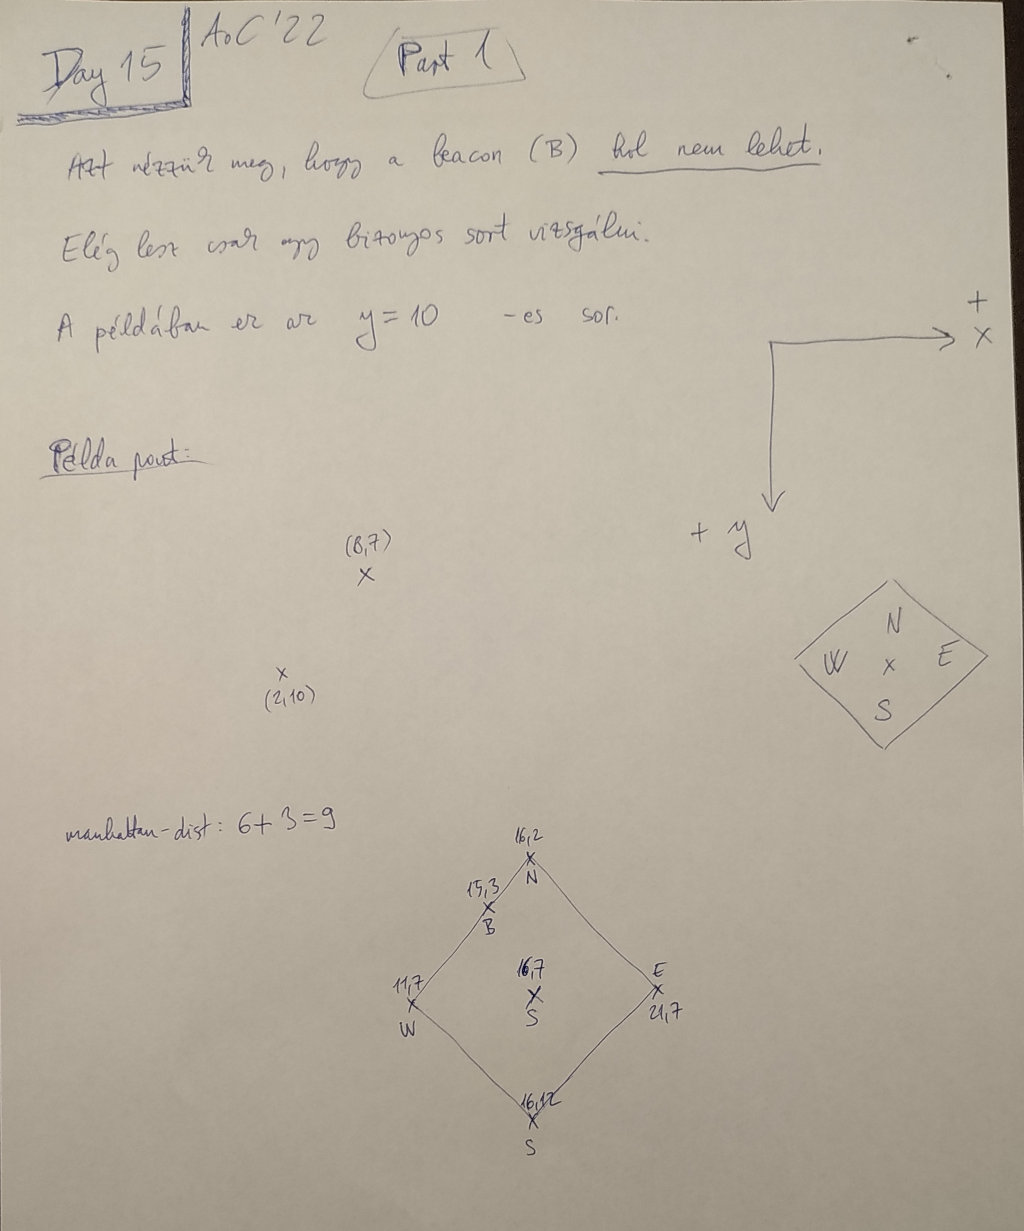 Day 15
AoC '22
Part 1
Azt nézzük meg, hogy a beacon (B) hol nem lehet.
Elég lesz csak egy bizonyos sort vizsgálni.
A példában ez az y = 10 -es sor.
+
x
Példa pont:
+ y
(8,7)
x
N
W x E
S
x
(2,10)
manhattan-dist: 6+3=9
16,2
x
N
15,3
x
B
16,7
x
S
E
x
21,7
11,7
x
W
16,12
x
S